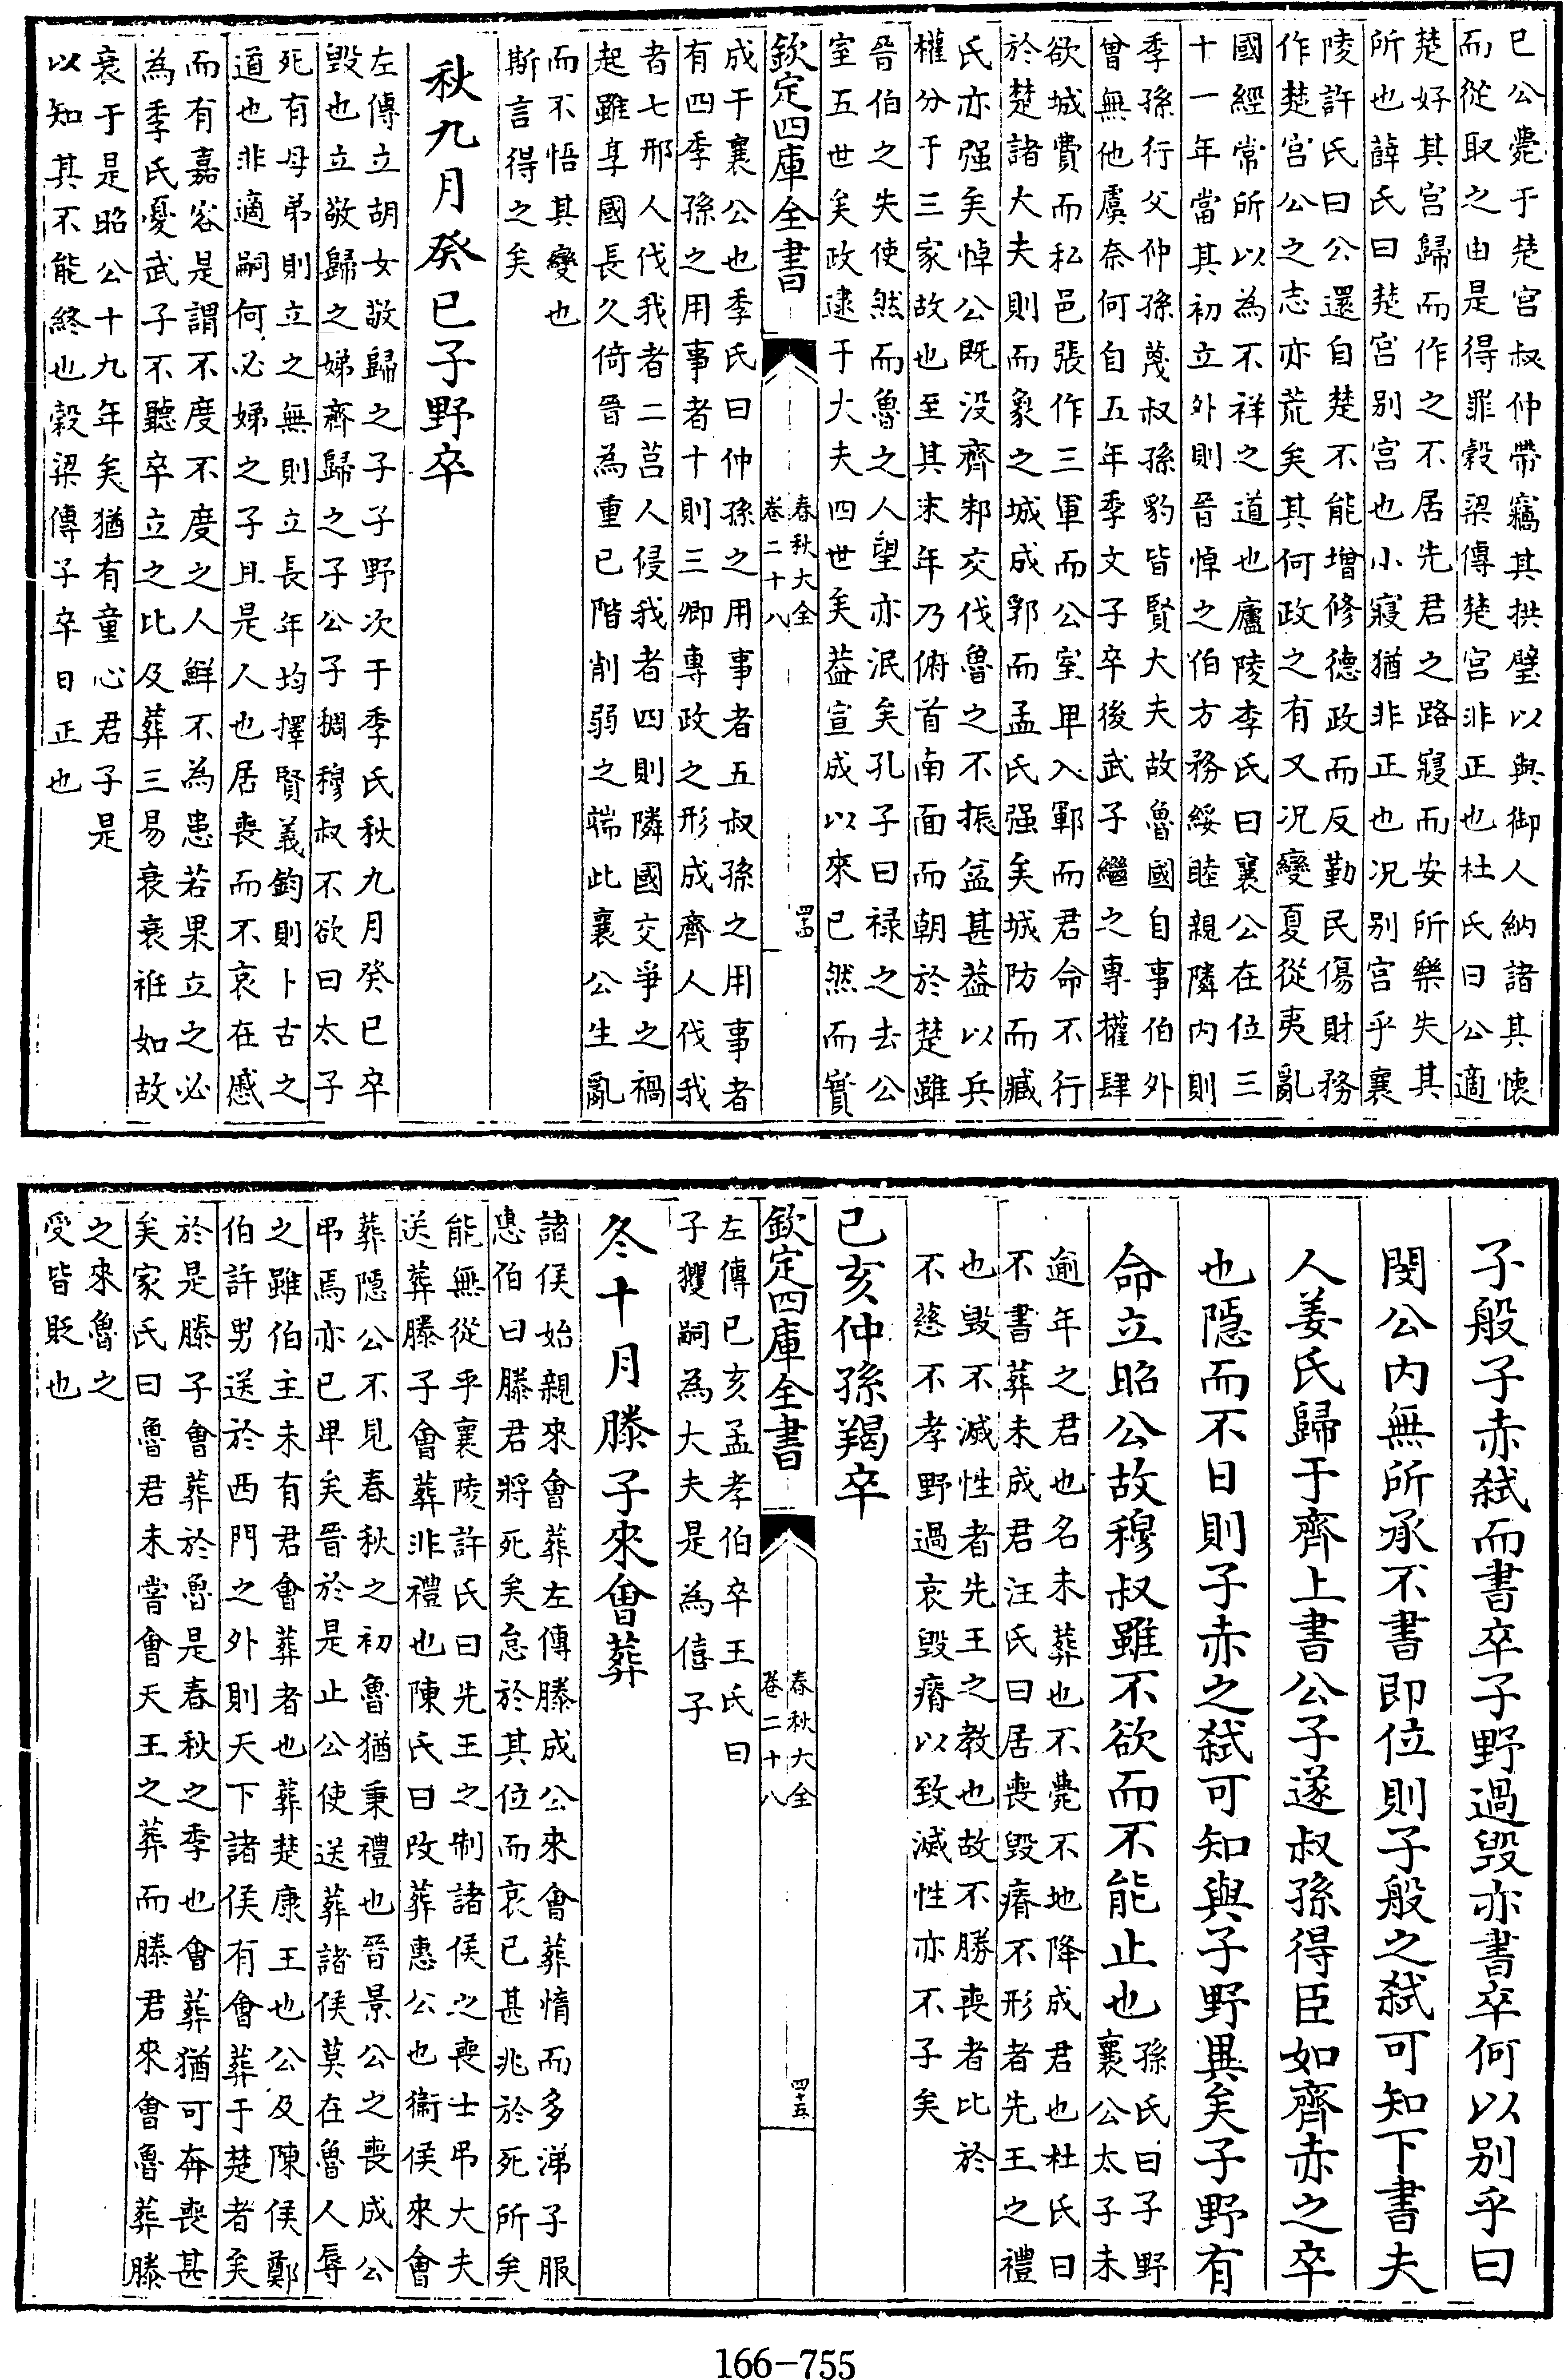 巳公薨于楚宮叔仲帶竊其拱璧以與御人納諸其懷
而從取之由是得罪穀梁傳楚宮非正也杜氏曰公適
楚好其宮歸而作之不居先君之路寢而安所樂失其
所也薛氏曰楚宮别宮也小寢猶非正也况别宮乎襄
陵許氏曰公還自楚不能增修德政而反勤民傷財務
作楚宮公之志亦荒矣其何政之有又况變夏從夷亂
國經常所以為不祥之道也廬陵李氏曰襄公在位三
十一年當其初立外則晉悼之伯方務綏睦親隣内則
季孫行父仲孫蔑叔孫豹皆賢大夫故魯國自事伯外
曾無他虞奈何自五年季文子卒後武子繼之專權肆
欲城費而私邑張作三軍而公室卑入鄆而君命不行
於楚諸大夫則而象之城成郛而孟氏强矣城防而臧
氏亦强矣悼公既没齊邾交伐魯之不振益甚益以兵
權分于三家故也至其末年乃俯首南面而朝於楚雖
晉伯之失使然而魯之人望亦泯矣孔子曰禄之去公
室五世矣政逮于大夫四世矣葢宣成以來已然而實
欽定四庫全書
春秋大全
卷二十八
四四
成于襄公也季氏曰仲孫之用事者五叔孫之用事者
有四季孫之用事者十則三卿專政之形成齊人伐我
者七邢人伐我者二莒人侵我者四則隣國交爭之禍
起雖享國長久倚晉為重已階削弱之端此襄公生亂
而不悟其變也
斯言得之矣
秋九月癸巳子野卒
左傳立胡女敬歸之子子野次于季氏秋九月癸巳卒
毁也立敬歸之娣齊歸之子公子裯穆叔不欲曰太子
死有母弟則立之無則立長年均擇賢義鈞則卜古之
道也非適嗣何必娣之子且是人也居喪而不哀在慼
而有嘉容是謂不度不度之人鮮不為患若果立之必
為季氏憂武子不聽卒立之比及葬三易衰衰衽如故
衰于是昭公十九年矣猶有童心君子是
以知其不能終也穀梁傳子卒日正也
子般子赤弑而書卒子野過毁亦書卒何以别乎曰
閔公内無所承不書即位則子般之弑可知下書夫
人姜氏歸于齊上書公子遂叔孫得臣如齊赤之卒
也隱而不日則子赤之弑可知與子野異矣子野有
命立昭公故穆叔雖不欲而不能止也
孫氏曰子野
襄公太子未
逾年之君也名未葬也不薨不地降成君也杜氏曰
不書葬未成君汪氏曰居喪毁瘠不形者先王之禮
也毁不滅性者先王之教也故不勝喪者比於
不慈不孝野過哀毁瘠以致滅性亦不子矣
已亥仲孫羯卒
欽定四庫全書
春秋大全
卷二十八
四十五
左傳已亥孟孝伯卒王氏曰
子貜嗣為大夫是為僖子
冬十月滕子來會葬
諸侯始親來會葬左傳滕成公來會葬惰而多涕子服
惠伯曰滕君將死矣怠於其位而哀已甚兆於死所矣
能無從乎襄陵許氏曰先王之制諸侯之喪士弔大夫
送葬滕子會葬非禮也陳氏曰改葬惠公也衞侯來會
葬隱公不見春秋之初魯猶秉禮也晉景公之喪成公
弔焉亦已卑矣晉於是止公使送葬諸侯莫在魯人辱
之雖伯主未有君會葬者也葬楚康王也公及陳侯鄭
伯許男送於西門之外則天下諸侯有會葬于楚者矣
於是滕子會葬於魯是春秋之季也會葬猶可奔喪甚
矣家氏曰魯君未嘗會天王之葬而滕君來會魯葬滕
之來魯之
受皆貶也
166-755